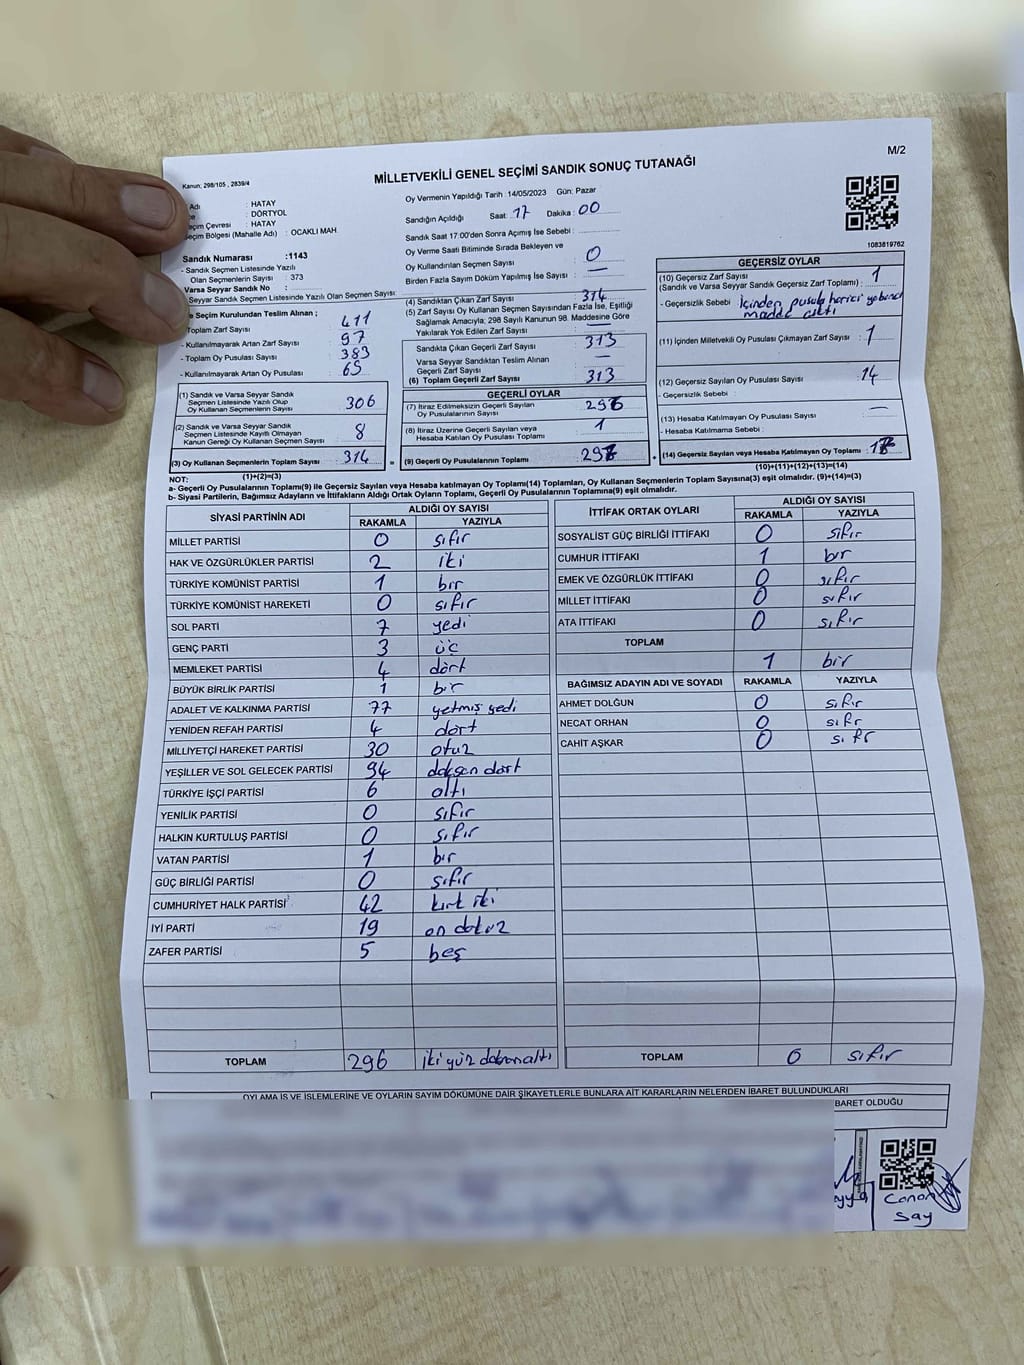 M/2
Kanun: 298/105 , 2839/4
MİLLETVEKİLİ GENEL SEÇİMİ SANDIK SONUÇ TUTANAĞI
Adı : HATAY
: DÖRTYOL
Seçim Çevresi : HATAY
Seçim Bölgesi (Mahalle Adı) : OCAKLI MAH.
Sandık Numarası :1143
- Sandık Seçmen Listesinde Yazılı
Olan Seçmenlerin Sayısı : 373
Varsa Seyyar Sandık No :
Seyyar Sandık Seçmen Listesinde Yazılı Olan Seçmen Sayısı:
Seçim Kurulundan Teslim Alınan ;
- Toplam Zarf Sayısı : 411
- Kullanılmayarak Artan Zarf Sayısı : 97
- Toplam Oy Pusulası Sayısı : 383
- Kullanılmayarak Artan Oy Pusulası : 65
(1) Sandık ve Varsa Seyyar Sandık
Seçmen Listesinde Yazılı Olup
Oy Kullanan Seçmenlerin Sayısı 306
(2) Sandık ve Varsa Seyyar Sandık
Seçmen Listesinde Kayıtlı Olmayan
Kanun Gereği Oy Kullanan Seçmen Sayısı 8
(3) Oy Kullanan Seçmenlerin Toplam Sayısı 314
(1)+(2)=(3)
Oy Vermenin Yapıldığı Tarih : 14/05/2023 Gün: Pazar
Sandığın Açıldığı Saat: 17 Dakika : 00
Sandık Saat 17:00'den Sonra Açımış İse Sebebi :
Oy Verme Saati Bitiminde Sırada Bekleyen ve
Oy Kullandırılan Seçmen Sayısı : 0
Birden Fazla Sayım Döküm Yapılmış İse Sayısı : —
(4) Sandıktan Çıkan Zarf Sayısı 314
(5) Zarf Sayısı Oy Kullanan Seçmen Sayısından Fazla İse, Eşitliği
Sağlamak Amacıyla; 298 Sayılı Kanunun 98. Maddesine Göre
Yakılarak Yok Edilen Zarf Sayısı : —
Sandıkta Çıkan Geçerli Zarf Sayısı : 313
Varsa Seyyar Sandıktan Teslim Alınan
Geçerli Zarf Sayısı : —
(6) Toplam Geçerli Zarf Sayısı : 313
GEÇERLİ OYLAR
(7) İtiraz Edilmeksizin Geçerli Sayılan
Oy Pusulalarının Sayısı : 296
(8) İtiraz Üzerine Geçerli Sayılan veya
Hesaba Katılan Oy Pusulası Toplamı : 1
(9) Geçerli Oy Pusulalarının Toplamı :
1083819762
GEÇERSİZ OYLAR
(10) Geçersiz Zarf Sayısı
(Sandık ve Varsa Seyyar Sandık Geçersiz Zarf Toplamı) : 1
- Geçersizlik Sebebi : İçinden pusula harici yabancı
madde çıktı
(11) İçinden Milletvekili Oy Pusulası Çıkmayan Zarf Sayısı : 1
(12) Geçersiz Sayılan Oy Pusulası Sayısı : 14
- Geçersizlik Sebebi :
(13) Hesaba Katılmayan Oy Pusulası Sayısı : —
- Hesaba Katılmama Sebebi :
(14) Geçersiz Sayılan veya Hesaba Katılmayan Oy Toplamı :
(10)+(11)+(12)+(13)=(14)
NOT:
a- Geçerli Oy Pusulalarının Toplamı(9) ile Geçersiz Sayılan veya Hesaba katılmayan Oy Toplamı(14) Toplamları, Oy Kullanan Seçmenlerin Toplam Sayısına(3) eşit olmalıdır. (9)+(14)=(3)
b- Siyasi Partilerin, Bağımsız Adayların ve İttifakların Aldığı Ortak Oyların Toplamı, Geçerli Oy Pusulalarının Toplamına(9) eşit olmalıdır.
SİYASİ PARTİNİN ADI ALDIĞI OY SAYISI
RAKAMLA YAZIYLA
MİLLET PARTİSİ 0 sıfır
HAK VE ÖZGÜRLÜKLER PARTİSİ 2 iki
TÜRKİYE KOMÜNİST PARTİSİ 1 bir
TÜRKİYE KOMÜNİST HAREKETİ 0 sıfır
SOL PARTİ 7 yedi
GENÇ PARTİ 3 üç
MEMLEKET PARTİSİ 4 dört
BÜYÜK BİRLİK PARTİSİ 1 bir
ADALET VE KALKINMA PARTİSİ 77 yetmiş yedi
YENİDEN REFAH PARTİSİ 4 dört
MİLLİYETÇİ HAREKET PARTİSİ 30 otuz
YEŞİLLER VE SOL GELECEK PARTİSİ 94 doksan dört
TÜRKİYE İŞÇİ PARTİSİ 6 altı
YENİLİK PARTİSİ 0 sıfır
HALKIN KURTULUŞ PARTİSİ 0 sıfır
VATAN PARTİSİ 1 bir
GÜÇ BİRLİĞİ PARTİSİ 0 sıfır
CUMHURİYET HALK PARTİSİ 42 kırk iki
İYİ PARTİ 19 on dokuz
ZAFER PARTİSİ 5 beş
TOPLAM 296 iki yüz doksan altı
İTTİFAK ORTAK OYLARI ALDIĞI OY SAYISI
RAKAMLA YAZIYLA
SOSYALİST GÜÇ BİRLİĞİ İTTİFAKI 0 sıfır
CUMHUR İTTİFAKI 1 bir
EMEK VE ÖZGÜRLÜK İTTİFAKI 0 sıfır
MİLLET İTTİFAKI 0 sıfır
ATA İTTİFAKI 0 sıfır
TOPLAM
1 bir
BAĞIMSIZ ADAYIN ADI VE SOYADI RAKAMLA YAZIYLA
AHMET DOLĞUN 0 sıfır
NECAT ORHAN 0 sıfr
CAHİT AŞKAR 0 sıfr
TOPLAM 0 sıfır
OYLAMA İŞ VE İŞLEMLERİNE VE OYLARIN SAYIM DÖKÜMÜNE DAİR ŞİKAYETLERLE BUNLARA AİT KARARLARIN NELERDEN İBARET BULUNDUKLARI
BARET OLDUĞU
Canan
Say